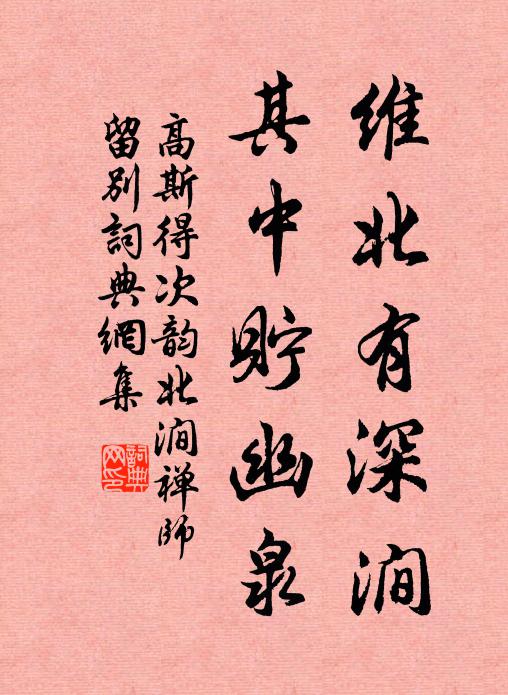 维北有深涧
其中贮幽泉
高斯得次韵北涧禅师
留别词典網集
詞典
网印